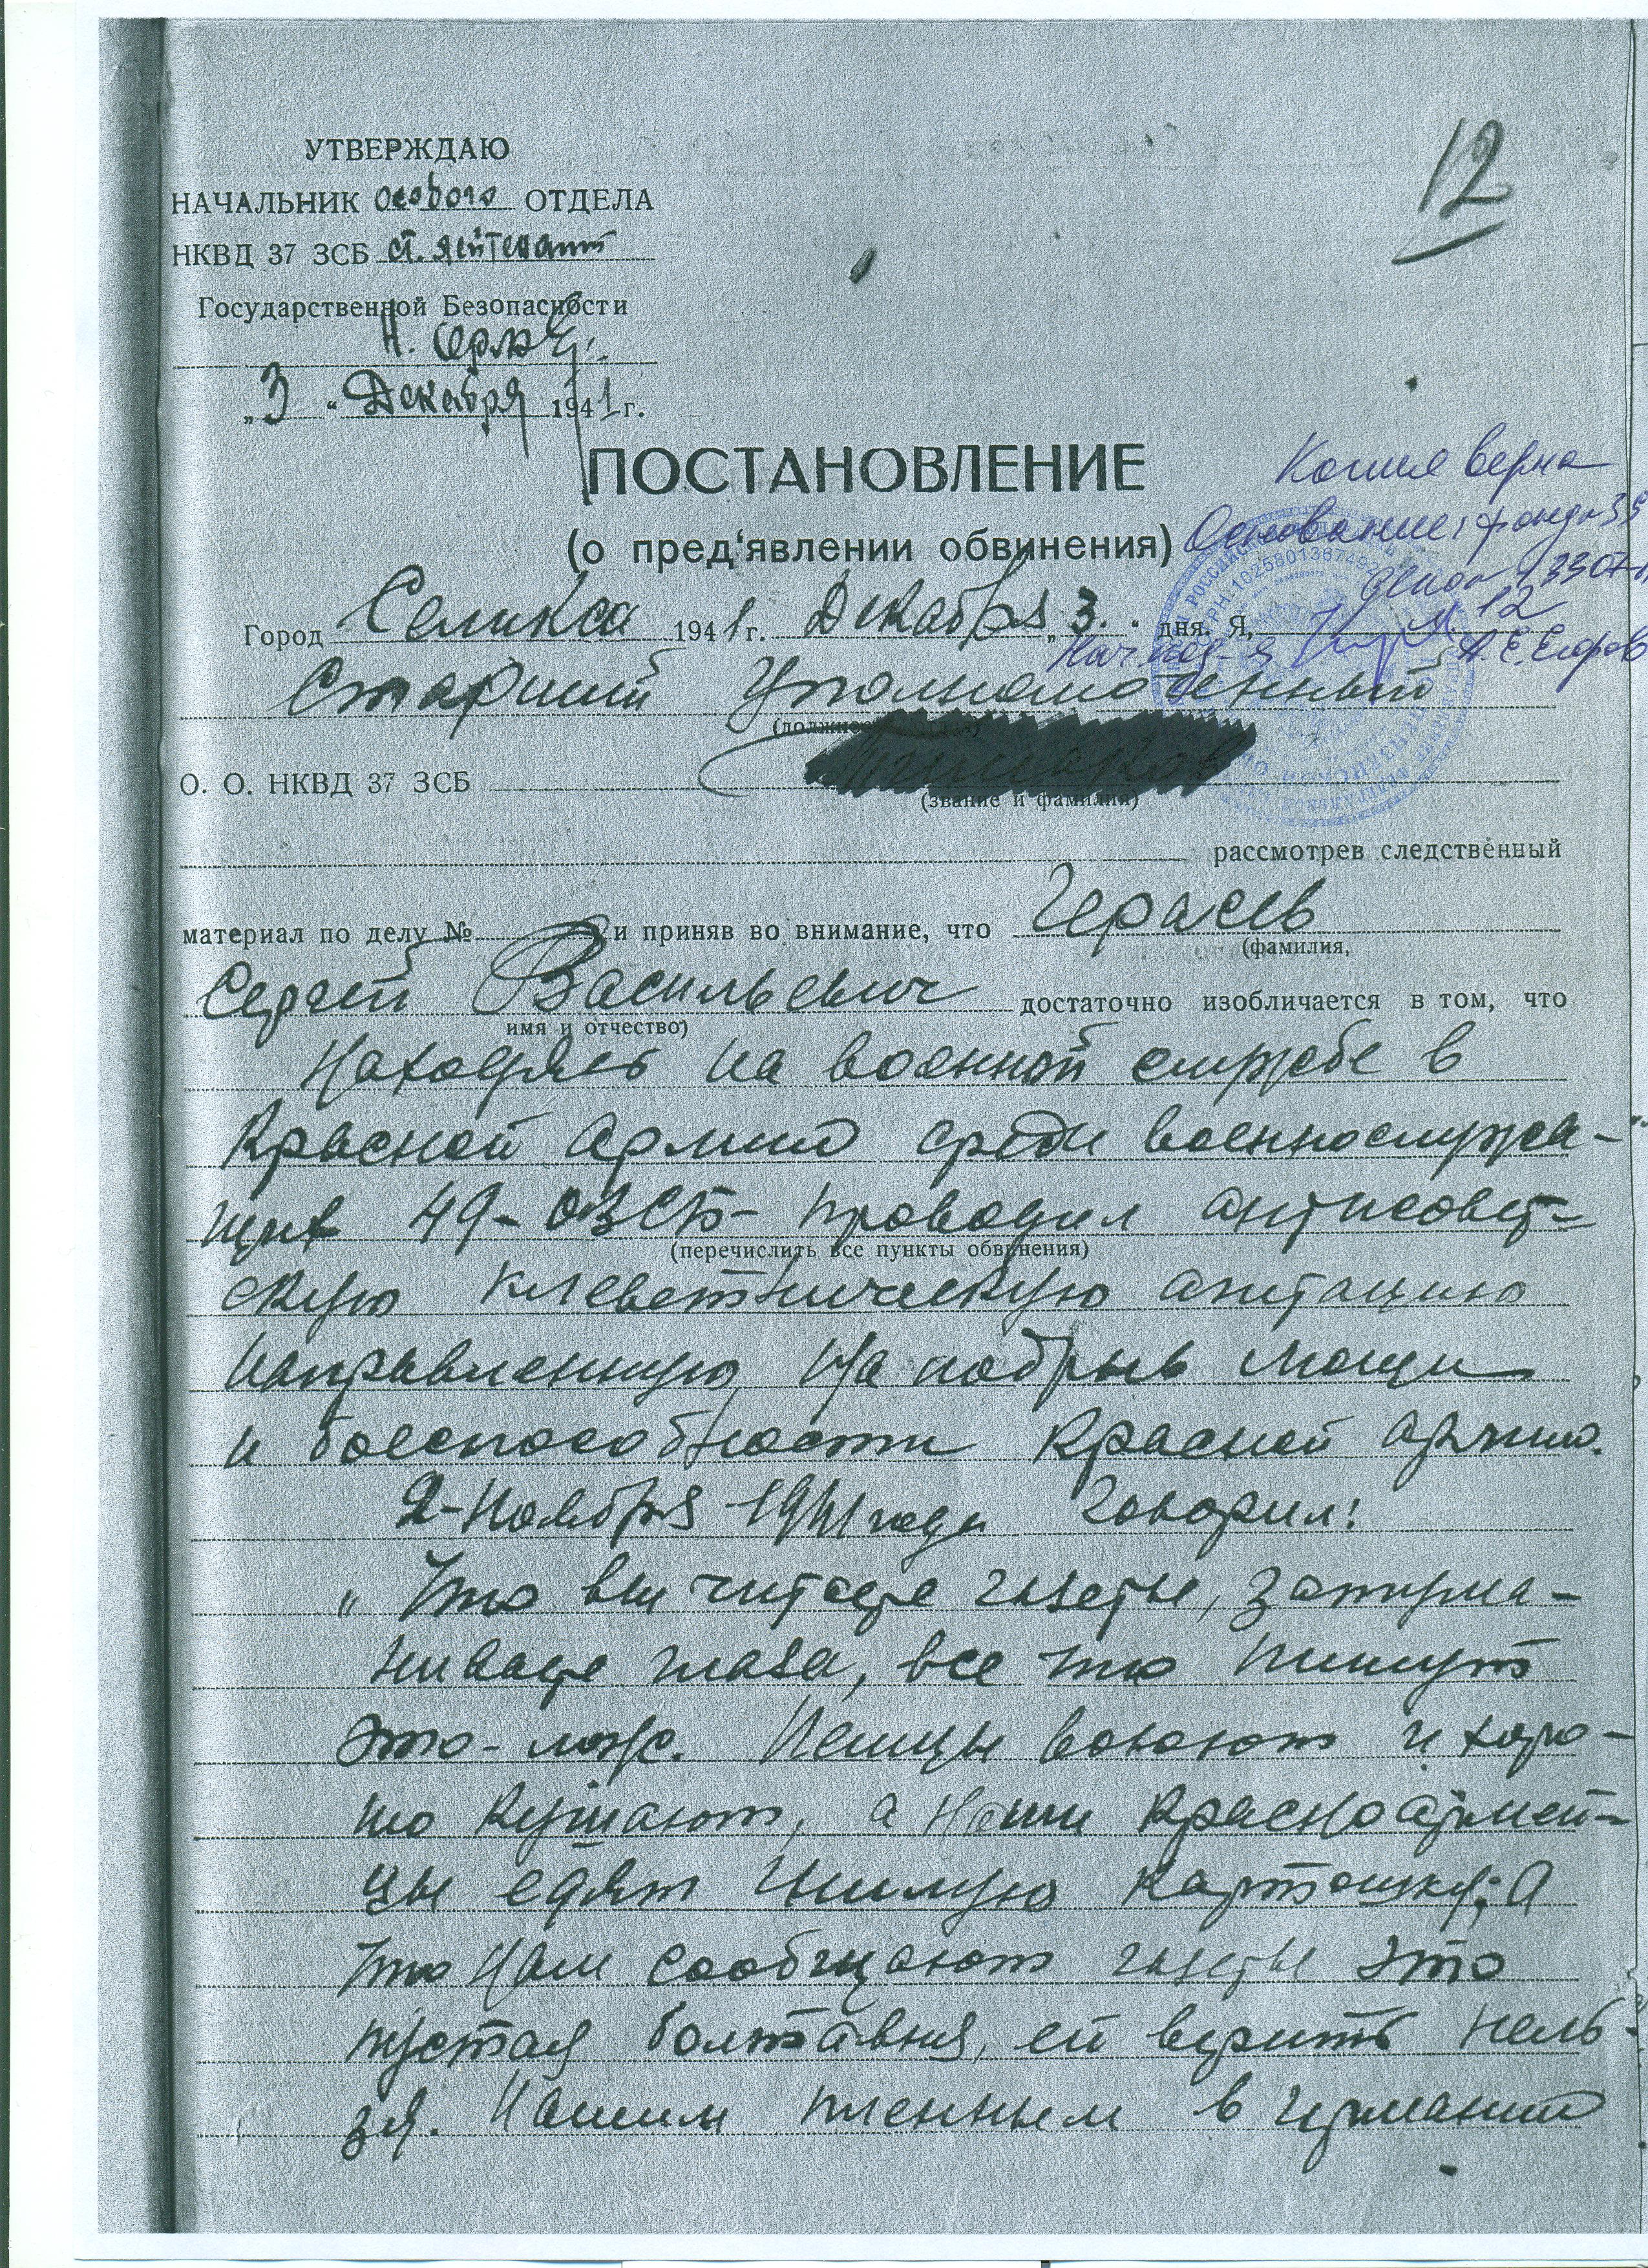 12
УТВЕРЖДАЮ
НАЧАЛЬНИК Особого ОТДЕЛА
НКВД 37 ЗСБ ст. лейтенант
Государственной Безопасности
Н.
„3“ Декабря 1941 г.
ПОСТАНОВЛЕНИЕ
(о пред‘явлении обвинения)
Копия верна
Основание: фонд
12
А.Е. Егоров
Город Селикса 1941 г. Декабря „3.“ дня. Я,
Старший Уполномоченный
О. О. НКВД 37 ЗСБ
(звание и фамилия)
рассмотрев следственный
материал по делу № и приняв во внимание, что Цераев
(фамилия,
Сергей Васильевич достаточно изобличается в том, что
имя и отчество)
Находясь на военной службе в
Красной армии среди военнослужа-
щих 49-ОЗСБ- проводил антисовет-
(перечислить все пункты обвинения)
скую клеветническую агитацию
направленную на подрыв мощи
и боеспособности Красной армии.
2-Ноября 1941 года говорил:
„ Что вы читаете газеты, затума-
ниваете глаза, все что пишут
это- ложь. Немцы воюют и хоро-
шо кушают, а наши красноармей-
цы едят гнилую картошку; А
что нам сообщают газеты это
пустая болтавня, ей верить нель-
зя. Нашим пленным в германии